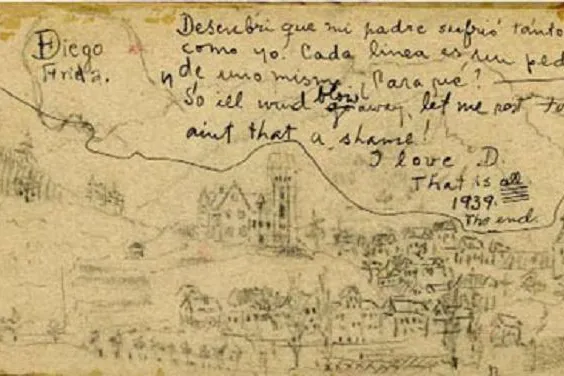 Diego
Frida.
Descubri que mi padre sufrió tánto
como yo. Cada linea es un ped
de uno mismo ¿Para qué?
So ill wind blow away, let me rest
aint that a shame!
I love D.
That is all
1939.
The end.